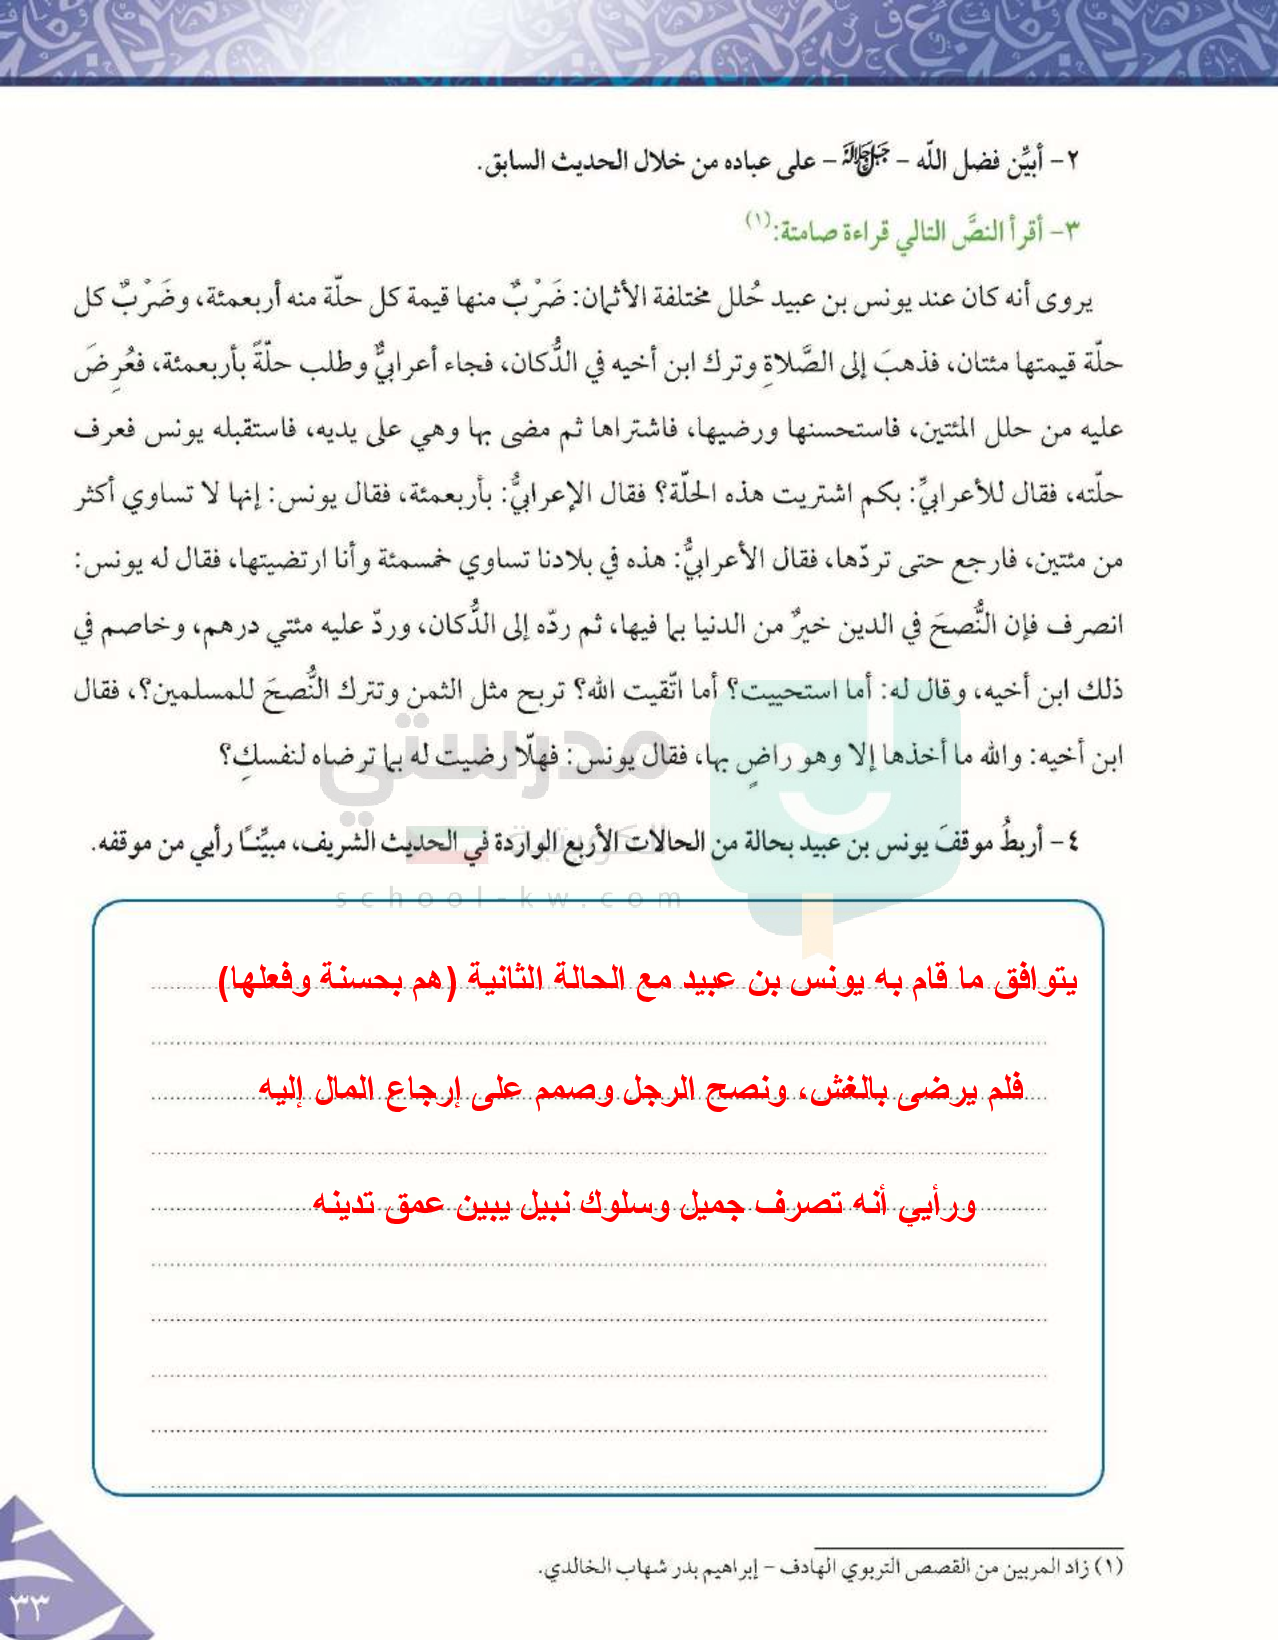 ٢- أبيِّن فضل اللّه - ﷻ - على عباده من خلال الحديث السابق.
٣- أقرأ النصَّ التالي قراءة صامتة:(١)
يروى أنه كان عند يونس بن عبيد حُلل مختلفة الأثمان: ضَرْبٌ منها قيمة كل حلّة منه أربعمئة، وضَرْبٌ كل
حلّة قيمتها مئتان، فذهبَ إلى الصَّلاةِ وترك ابن أخيه في الدُّكان، فجاء أعرابيٌّ وطلب حلّةً بأربعمئة، فعُرِضَ
عليه من حلل المئتين، فاستحسنها ورضيها، فاشتراها ثم مضى بها وهي على يديه، فاستقبله يونس فعرف
حلّته، فقال للأعرابيِّ: بكم اشتريت هذه الحلّة؟ فقال الإعرابيُّ: بأربعمئة، فقال يونس: إنها لا تساوي أكثر
من مئتين، فارجع حتى تردّها، فقال الأعرابيُّ: هذه في بلادنا تساوي خمسمئة وأنا ارتضيتها، فقال له يونس:
انصرف فإن النُّصحَ في الدين خيرٌ من الدنيا بما فيها، ثم ردّه إلى الدُّكان، وردّ عليه مئتي درهم، وخاصم في
ذلك ابن أخيه، وقال له: أما استحييت؟ أما اتّقيت الله؟ تربح مثل الثمن وتترك النُّصحَ للمسلمين؟، فقال
ابن أخيه: والله ما أخذها إلا وهو راضٍ بها، فقال يونس: فهلّا رضيت له بما ترضاه لنفسكِ؟
مدرستي
الكويتية
school-kw.com
٤- أربطُ موقفَ يونس بن عبيد بحالة من الحالات الأربع الواردة في الحديث الشريف، مبيِّنًا رأيي من موقفه.
يتوافق ما قام به يونس بن عبيد مع الحالة الثانية (هم بحسنة وفعلها)
فلم يرضى بالغش، ونصح الرجل وصمم على إرجاع المال إليه
ورأيي أنه تصرف جميل وسلوك نبيل يبين عمق تدينه
(١) زاد المربين من القصص التربوي الهادف - إبراهيم بدر شهاب الخالدي.
٣٣